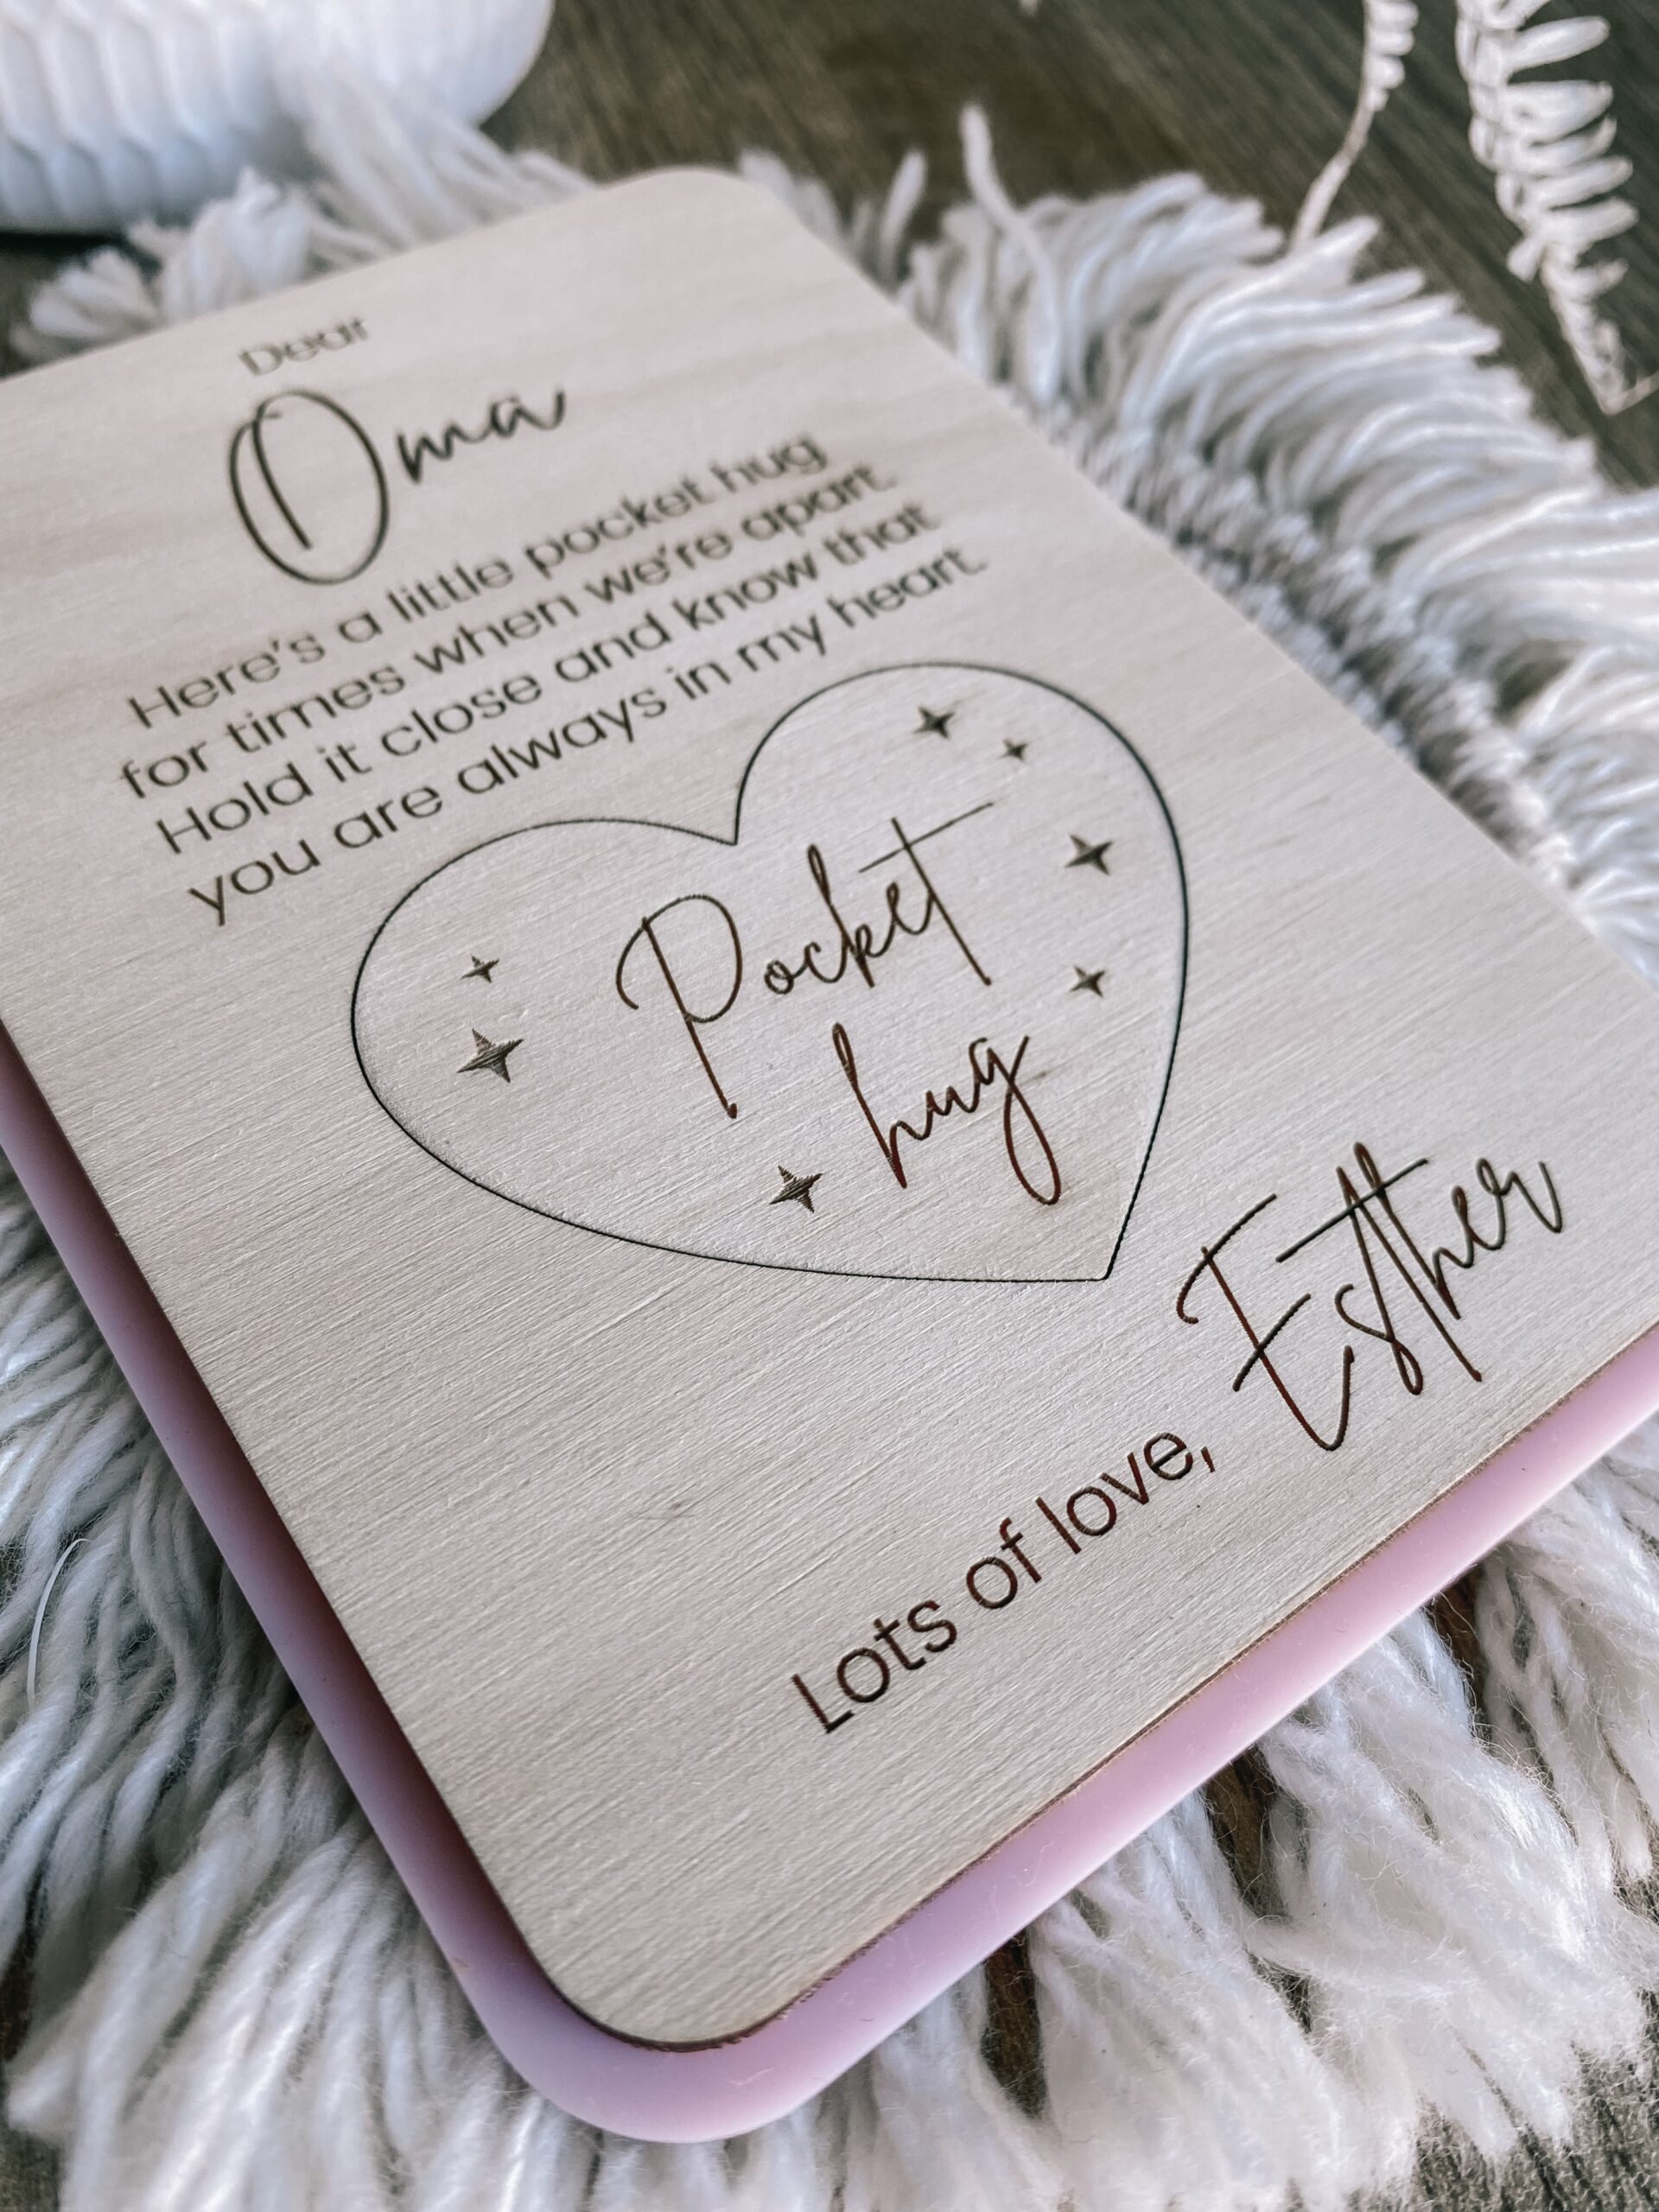 Dear
Oma
Here's a little pocket hug
for times when we're apart.
Hold it close and know that
you are always in my heart.
Pocket
hug
Lots of love, Esther